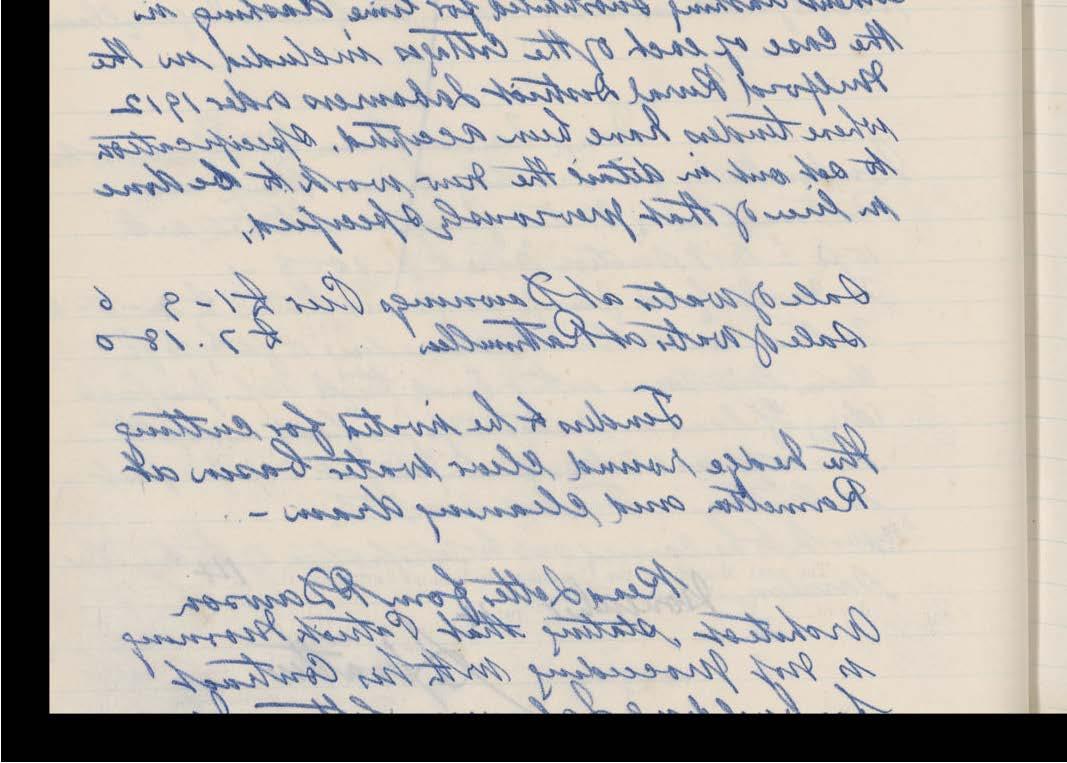 dashing substituted for lime dashing in
the case of each of the Cottages included in the
Milford Rural District Labourers order 1912
where tenders have been accepted. Specification
to set out in detail the new work to be done
in lieu of that previously specified.
Sale of water at Downings Pier £1-3-6
Sale of water at Rathmullen £7.18-0
Tenders to be invited for cutting
the hedge round clear water basin at
Ramelton and cleaning drain -
Read letter from R Dawson
Architect, stating that Patrick
is not proceeding with his Contract